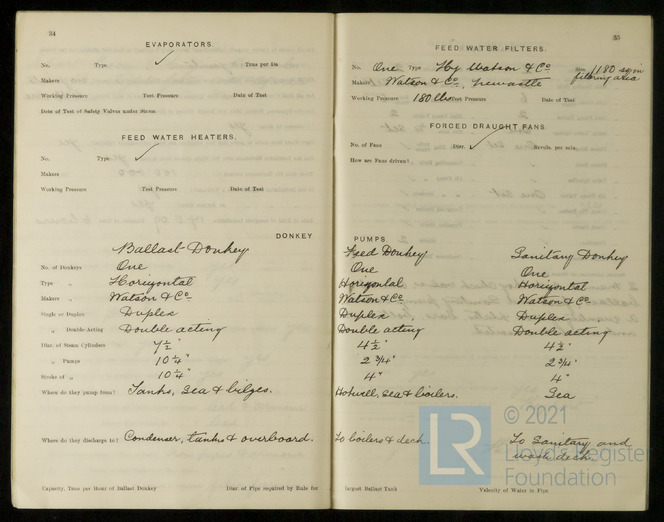 34
EVAPORATORS.
No. Type ✓ Tons per Da
Makers
Working Pressure Test Pressure Date of Test
Date of Test of Safety Valves under Steam
FEED WATER HEATERS.
No. Type ✓
Makers
Working Pressure Test Pressure Date of Test
DONKEY
Ballast Donkey
No. of Donkeys One
Type „ Horizontal
Makers „ Watson & Co
Single or Duplex Duplex
„ Double-Acting Double acting
Diar. of Steam Cylinders 7½"
„ Pumps 10¼"
Stroke of „ 10¼"
Where do they pump from? Tanks, Sea & bilges.
Where do they discharge to? Condenser, tanks & overboard.
Capacity, Tons per Hour of Ballast Donkey Diar of Pipe required by Rule for
35
FEED WATER FILTERS.
No. One Type Hy Watson & Co Size 1180 sq in
Makers Watson & Co, Newcastle filtering area
Working Pressure 180 lbs Test Pressure Date of Test
FORCED DRAUGHT FANS.
No. of Fans Diar. ✓ Revols. per min.
How are Fans driven?
PUMPS.
Feed Donkey Sanitary Donkey
One One
Horizontal Horizontal
Watson & Co Watson & Co
Duplex Duplex
Double acting Double acting
4½" 4½"
2¾" 2¾"
4" 4"
Hotwell, sea & boilers. Sea
To boilers & deck. To Sanitary and
wash deck.
largest Ballast Tank Velocity of Water in Pipe
LR
© 2021
Lloyd's Register
Foundation